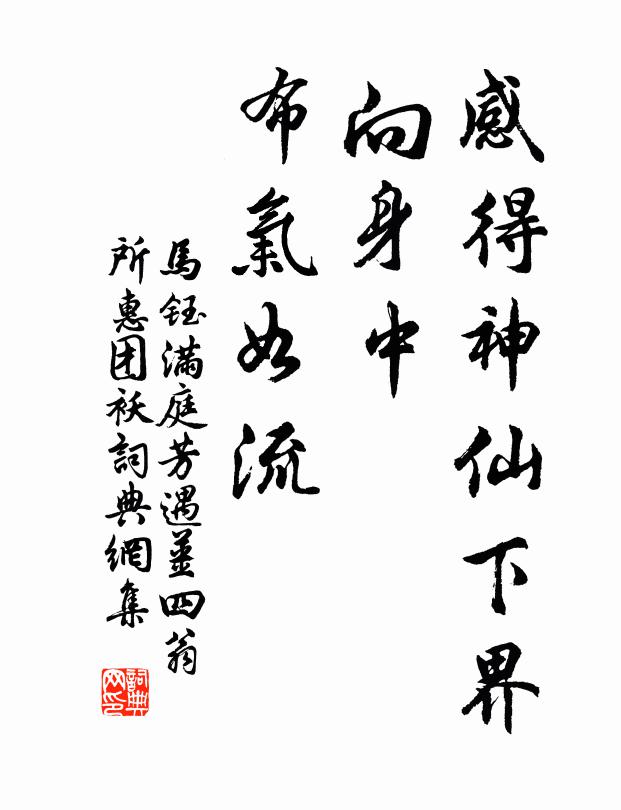 感得神仙下界
向身中
布氣如流
馬鈺滿庭芳遇薑四翁
所惠团袄詞典網集
詞典网印